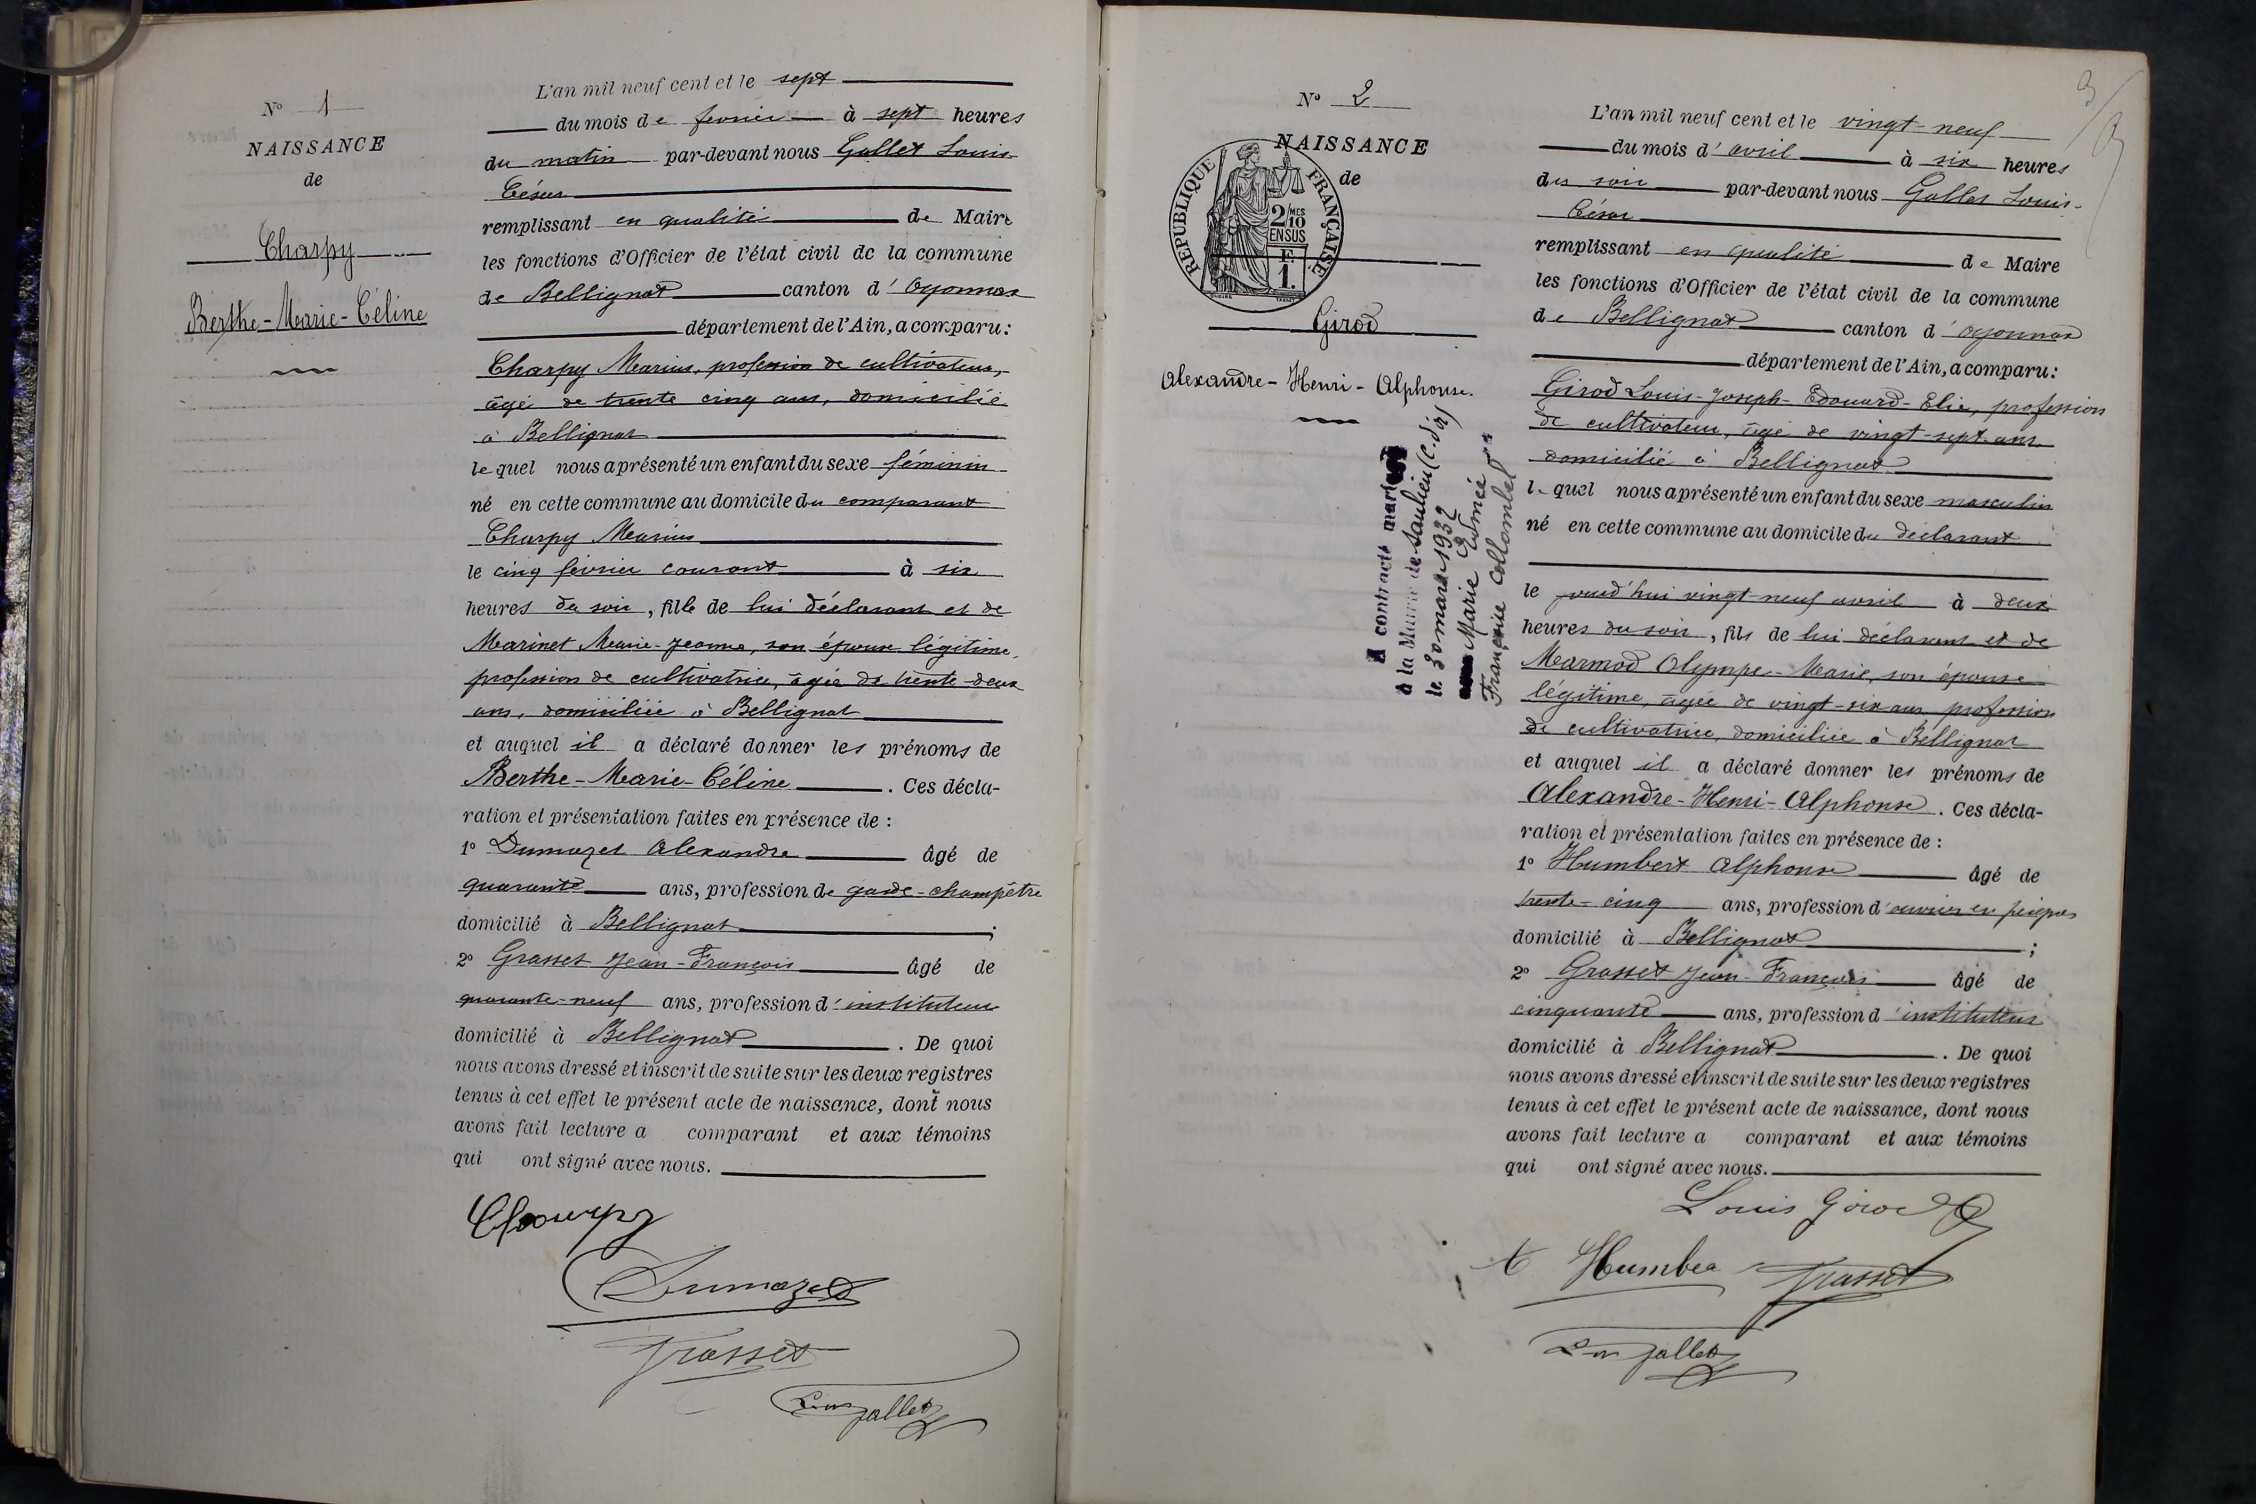 N° 1
NAISSANCE
de
Charpy
Berthe-Marie-Céline
L'an mil neuf cent et le sept
du mois de fevrier à sept heures
du matin par-devant nous Gallet Louis-
César
remplissant en qualité de Maire
les fonctions d'Officier de l'état civil de la commune
de Bellignat canton d'Oyonnax
département de l'Ain, a comparu:
Charpy Marius, profession de cultivateur,
âgé de trente cinq ans, domicilié
à Bellignat
lequel nous a présenté un enfant du sexe féminin
né en cette commune au domicile du comparant
Charpy Marius
le cinq février courant à six
heures du soir, fille de lui déclarant et de
Marinet Marie-Jeanne, son épouse légitime,
profession de cultivatrice, âgée de trente-deux
ans, domiciliée à Bellignat
et auquel il a déclaré donner les prénoms de
Berthe-Marie-Céline. Ces décla-
ration et présentation faites en présence de :
1° Dumazet Alexandre âgé de
quarante ans, profession de garde-champêtre
domicilié à Bellignat ;
2° Grasset Jean-François âgé de
quarante-neuf ans, profession d'instituteur
domicilié à Bellignat. De quoi
nous avons dressé et inscrit de suite sur les deux registres
tenus à cet effet le présent acte de naissance, dont nous
avons fait lecture a comparant et aux témoins
qui ont signé avec nous.
Charpy
Dumazet
Grasset
Gallet
3
N° 2
NAISSANCE
de
REPUBLIQUE FRANÇAISE
2/10 MES
EN SUS
1 F.
Girod
Alexandre-Henri-Alphonse.
A contracté mariage
à la Mairie de Saulieu (C. d'or)
le 30 mars 1932
Marie Edmée
Françoise Collombet
L'an mil neuf cent et le vingt-neuf
du mois d'avril à six heures
du soir par-devant nous Gallet Louis-
César
remplissant en qualité de Maire
les fonctions d'Officier de l'état civil de la commune
de Bellignat canton d'Oyonnax
département de l'Ain, a comparu:
Girod Louis-Joseph-Edouard-Elie, profession
de cultivateur, âgé de vingt-sept ans
domicilié à Bellignat
lequel nous a présenté un enfant du sexe masculin
né en cette commune au domicile du déclarant
le jourd'hui vingt-neuf avril à deux
heures du soir, fils de lui déclarant et de
Marmod Olympe-Marie, son épouse
légitime, âgée de vingt-six ans profession
de cultivatrice, domiciliée à Bellignat
et auquel il a déclaré donner les prénoms de
Alexandre-Henri-Alphonse. Ces décla-
ration et présentation faites en présence de :
1° Humbert Alphonse âgé de
trente-cinq ans, profession d'ouvrier en peignes
domicilié à Bellignat ;
2° Grasset Jean-François âgé de
cinquante ans, profession d'instituteur
domicilié à Bellignat. De quoi
nous avons dressé et inscrit de suite sur les deux registres
tenus à cet effet le présent acte de naissance, dont nous
avons fait lecture a comparant et aux témoins
qui ont signé avec nous.
Louis Girod
A Humbert Grasset
Gallet